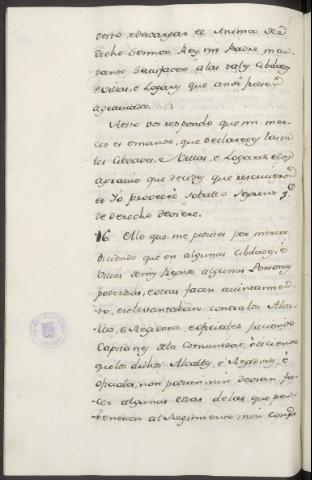 verso, e descargar el Anima del
dicho Sennor Rey, mi Padre, man
dando satisfacer a las tales Cibdades
e villas, e Logares que ansi fueren
agraviados.
A esto vos respondo que mi mer
ced es e mando, que declaredes las ta
les Cibdades, e Villas, e Logares, e los
agravios que decides que rescivieron
et Yo proveeré sobrello segunt q.e
de derecho deviere.
16. A lo que me pedistes por merced
diciendo que en algunas Cibdades, e
Villas de mis Regnos algunas Personas
poderosas, e otras facen ayuntamien
to, e se levantaban contra los Alcal
des, e Regidores, e oficiales faciendo
Capitanes de la Comunidat, e diciendo
que los dichos Alcaldes, e Regidores, e
oficiales, non podian nin devian fa
cer algunas cosas de las que per
tenescen al Regimiento, non